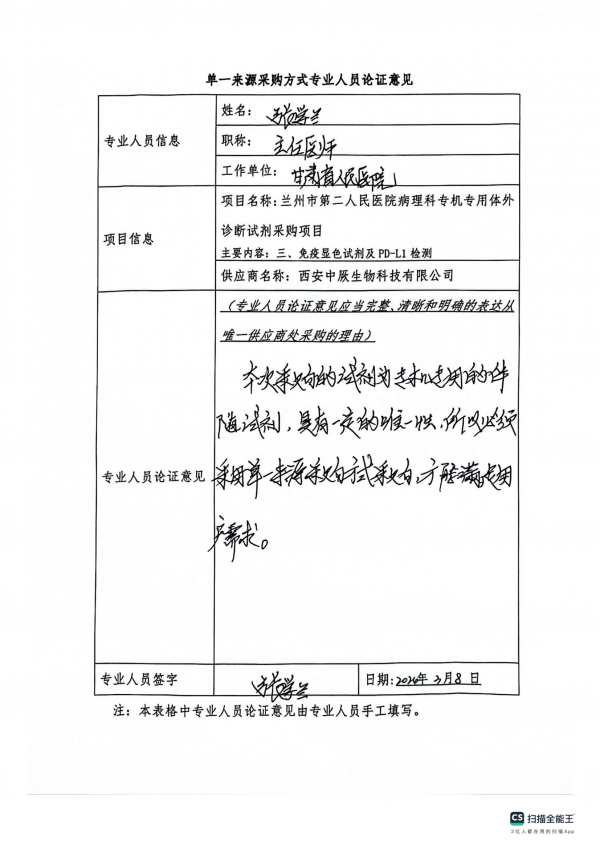 单一来源采购方式专业人员论证意见
专业人员信息
姓名：张学兰
职称：主任医师
工作单位：甘肃省人民医院
项目信息
项目名称：兰州市第二人民医院病理科专机专用体外
诊断试剂采购项目
主要内容：三、免疫显色试剂及PD-L1检测
供应商名称：西安中厥生物科技有限公司
专业人员论证意见
（专业人员论证意见应当完整、清晰和明确的表达从
唯一供应商处采购的理由）
本次采购的试剂为专机专用的伴
随试剂，具有一定的唯一性，所以必须
采用单一来源采购方式采购，方能满足用
户需求。
专业人员签字
张学兰
日期：2024年3月8日
注：本表格中专业人员论证意见由专业人员手工填写。
CS 扫描全能王
3亿人都在用的扫描App